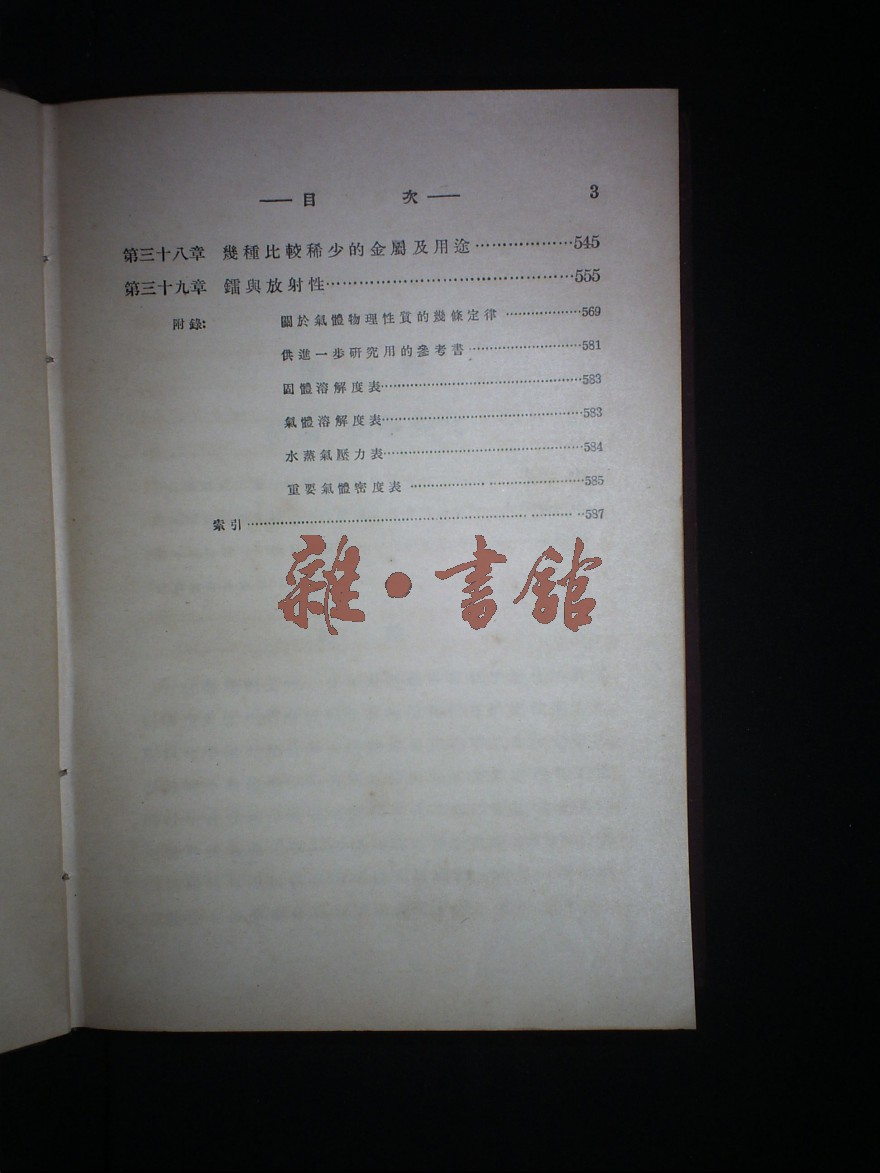 —— 目 次 —— 3
第三十八章 幾種比較稀少的金屬及用途………………545
第三十九章 鐳與放射性………………………………555
附錄: 關於氣體物理性質的幾條定律 ………………569
供進一步研究用的參考書………………………581
固體溶解度表……………………………………583
氣體溶解度表……………………………………583
水蒸氣壓力表……………………………………584
重要氣體密度表 …………………………………585
索引……………………………………………………587
雜·書館